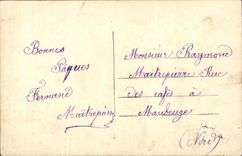 Bonnes
Pâques
Fernand
Maitrepierre
Monsieur Raymond
Maitrepierre Rue
des cafés à
Maubeuge
(Nord)